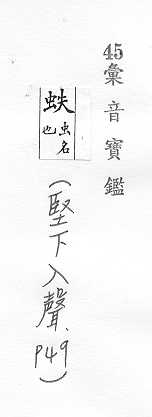 45彙音寶鑑
蚨
虫名
也
(堅下入聲、P49)